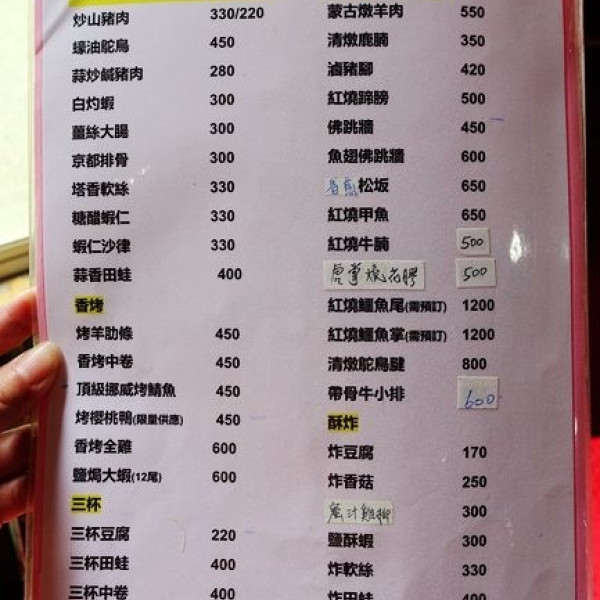 炒山豬肉 330/220
蠔油鴕鳥 450
蒜炒鹹豬肉 280
白灼蝦 300
薑絲大腸 300
京都排骨 300
塔香軟絲 330
糖醋蝦仁 330
蝦仁沙律 330
蒜香田蛙 400
香烤
烤羊肋條 450
香烤中卷 450
頂級挪威烤鯖魚 450
烤櫻桃鴨(限量供應) 450
香烤全雞 600
鹽焗大蝦(12尾) 600
三杯
三杯豆腐 220
三杯田蛙 400
三杯中卷 400
蒙古燉羊肉 550
清燉鹿腩 350
滷豬腳 420
紅燒蹄膀 500
佛跳牆 450
魚翅佛跳牆 600
香煎松坂 650
紅燒甲魚 650
紅燒牛腩 500
虎掌燒花膠 500
紅燒鱷魚尾(需預訂) 1200
紅燒鱷魚掌(需預訂) 1200
清燉鴕鳥腱 800
帶骨牛小排 600
酥炸
炸豆腐 170
炸香菇 250
蜜汁雞柳 300
鹽酥蝦 300
炸軟絲 330
炸田蛙 400